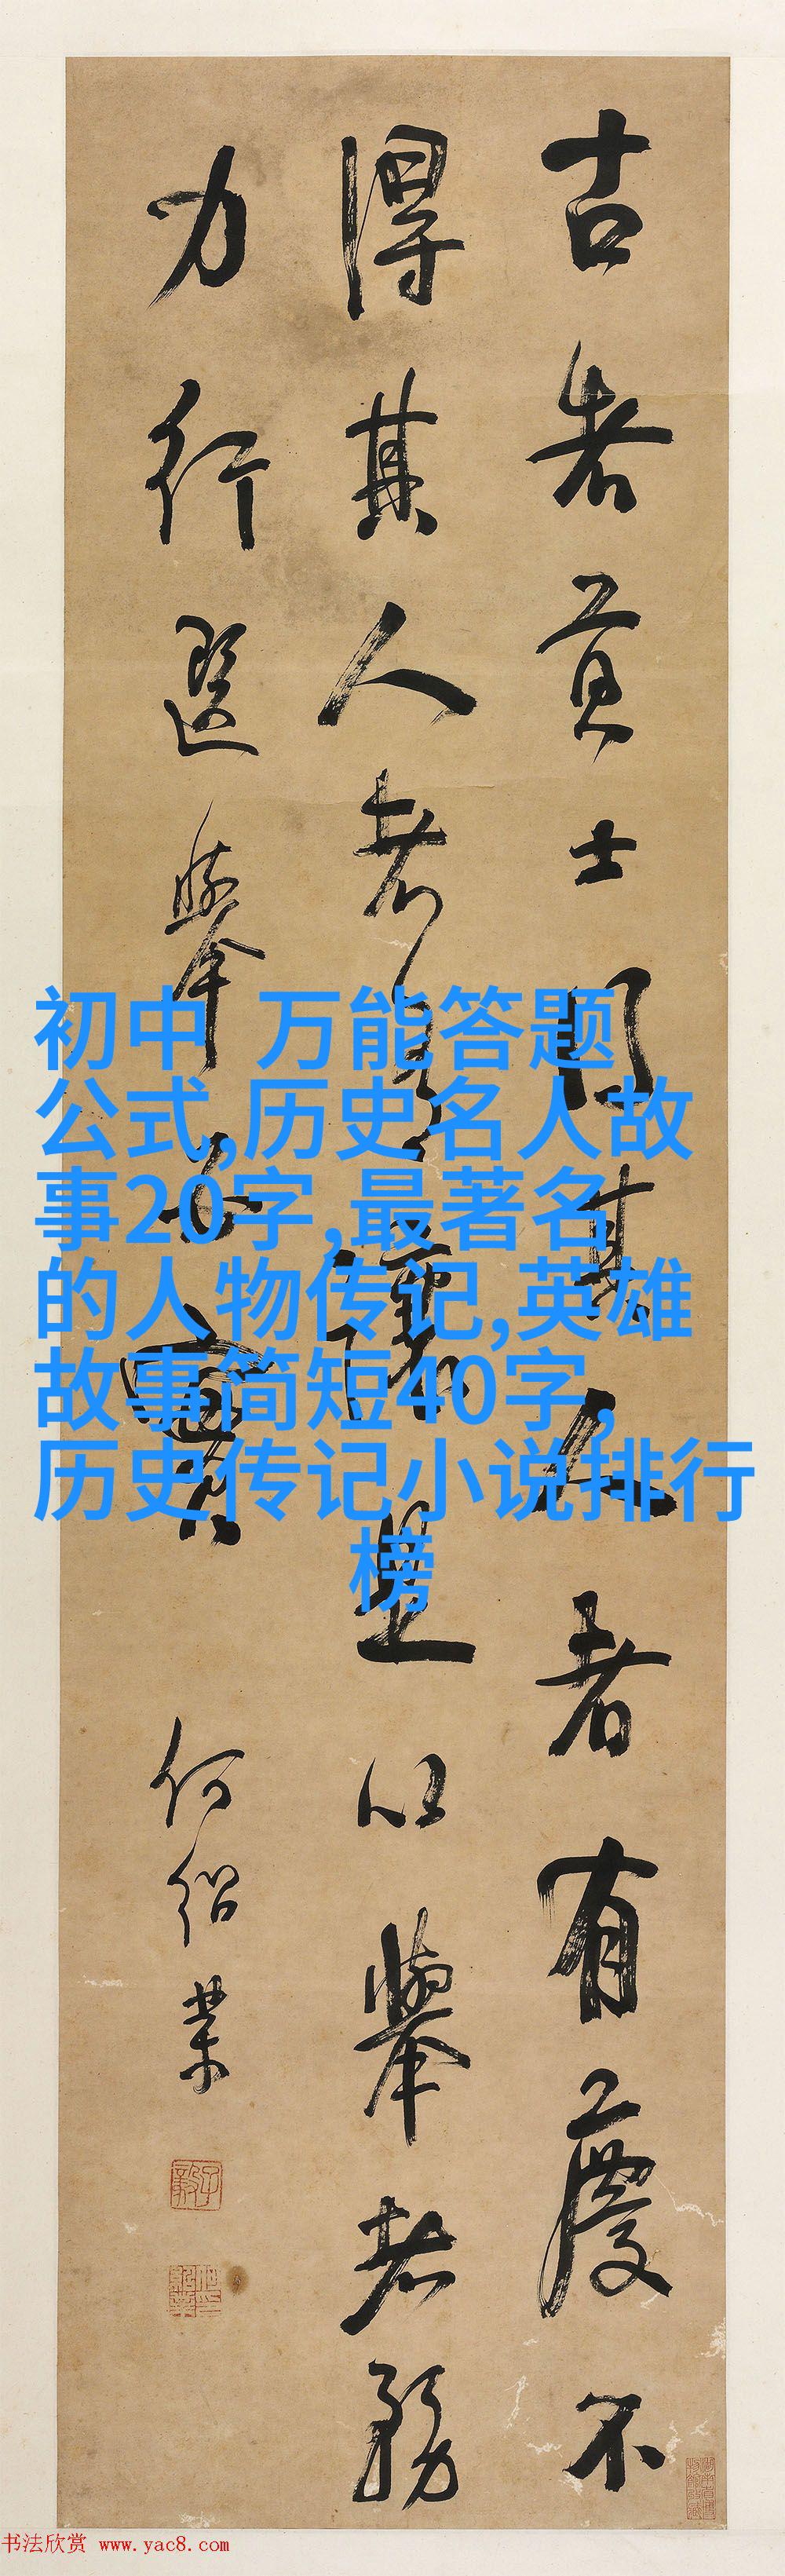 古者貢士得其人者有慶不
得其人者有讓是以舉者務
力行選舉實
何紹業
初中 万能答题
公式,历史名人故
事20字,最著名
的人物传记,英雄
故事简短40字,
历史传记小说排行
榜
书法欣赏 www.yac8.com